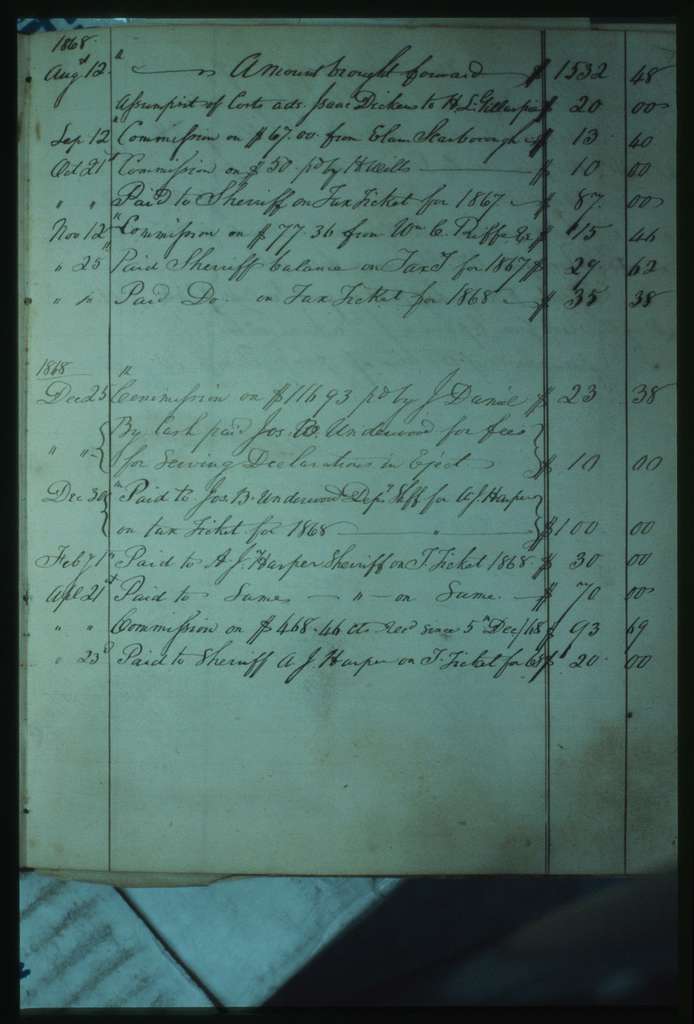 1868
Augt 12 " Amount brought forward $ 1532 48
Assumpsit of Costs ads. Isaac Dickens to H. L. $ 20 00
Sep 12 " Commission on $67.00 from Elam Scarborough $ 13 40
Oct 21st Commission on $50 pd by Wills $ 10 00
" " Paid to Sheriff on Tax Ticket for 1867 $ 87 00
Nov 12 " Commission on $77.36 from Wm C. $ 15 46
" 25 " Paid Sheriff balance on Tax T for 1867 $ 29 62
" " Paid Do. on Tax Ticket for 1868 $ 35 38
1868
Dec 25 " Commission on $116 93 pd by J Daniel $ 23 38
By Cash paid Jos. B. Underwood for fees
" " for serving Declarations in Eject $ 10 00
Dec 30 " Paid to Jos. B. Underwood Depy Shff for A. J. Harper
on tax Ticket for 1868 " $ 100 00
Feby 1st Paid to A. J. Harper Sheriff on T. Ticket 1868 $ 30 00
Apl 21st Paid to Same " on Same $ 70 00
" " Commission on $468.46 cts Recd since 5th Dec/68 $ 93 69
" 23d Paid to Sheriff A J Harper on T. Ticket for 68 $ 20 00